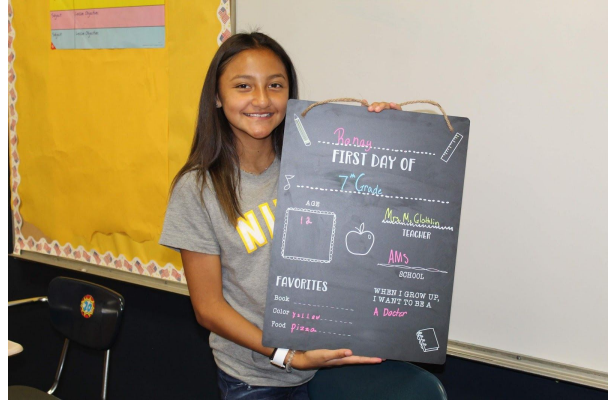 Randy
FIRST DAY OF
7th Grade
AGE
12
Mrs. McGlothlin
TEACHER
AMS
SCHOOL
FAVORITES
Book
Color Yellow
Food Pizza
WHEN I GROW UP,
I WANT TO BE A
A Doctor
NI